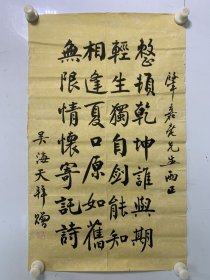 肇嘉先生雨正
整頓乾坤誰與期
輕生獨自劍能知
相逢夏口原如舊
無限情懷寄託詩
吴海天拜贈